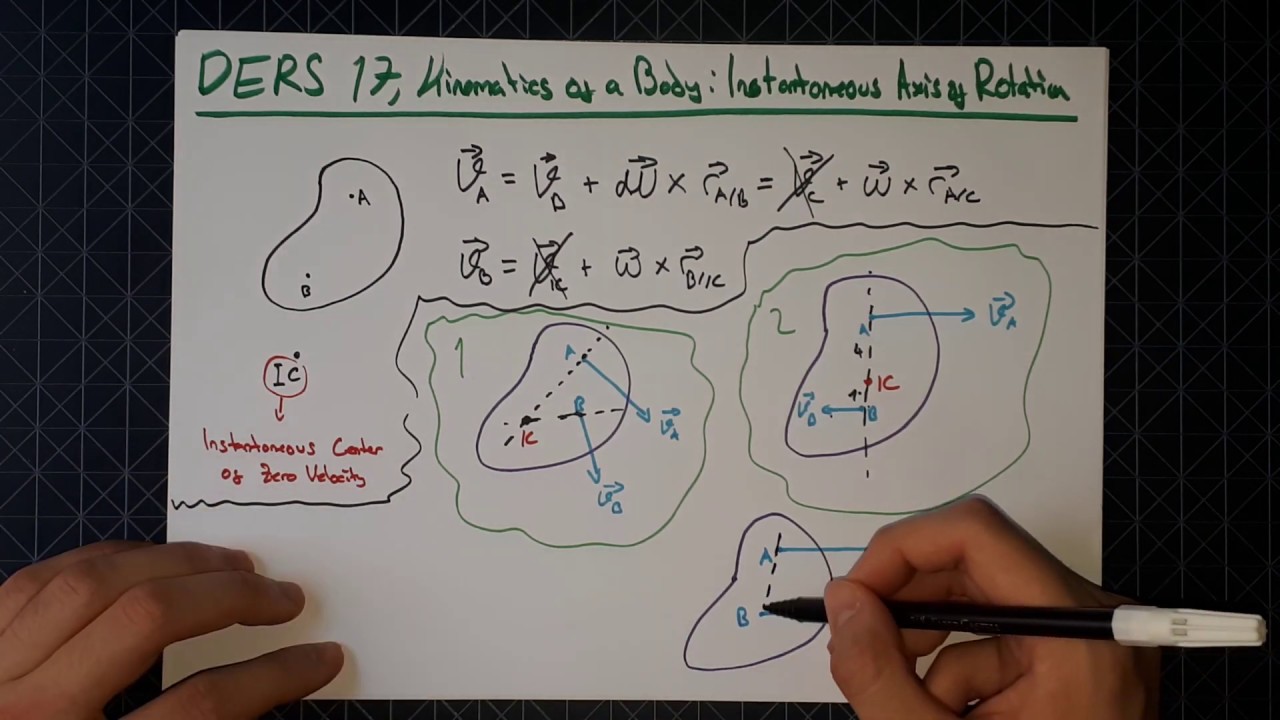 DERS 17, Kinematics of a Body: Instantaneous Axis of Rotation
.A
B
V⃗_A = V⃗_B + ω⃗ × r⃗_A/B = V⃗_IC + ω⃗ × r⃗_A/IC
V⃗_B = V⃗_IC + ω⃗ × r⃗_B/IC
IC
Instantaneous Center
of Zero Velocity
1
A
B
IC
V⃗_A
V⃗_B
2
A
V⃗_A
4
IC
1
V⃗_B
B
A
B